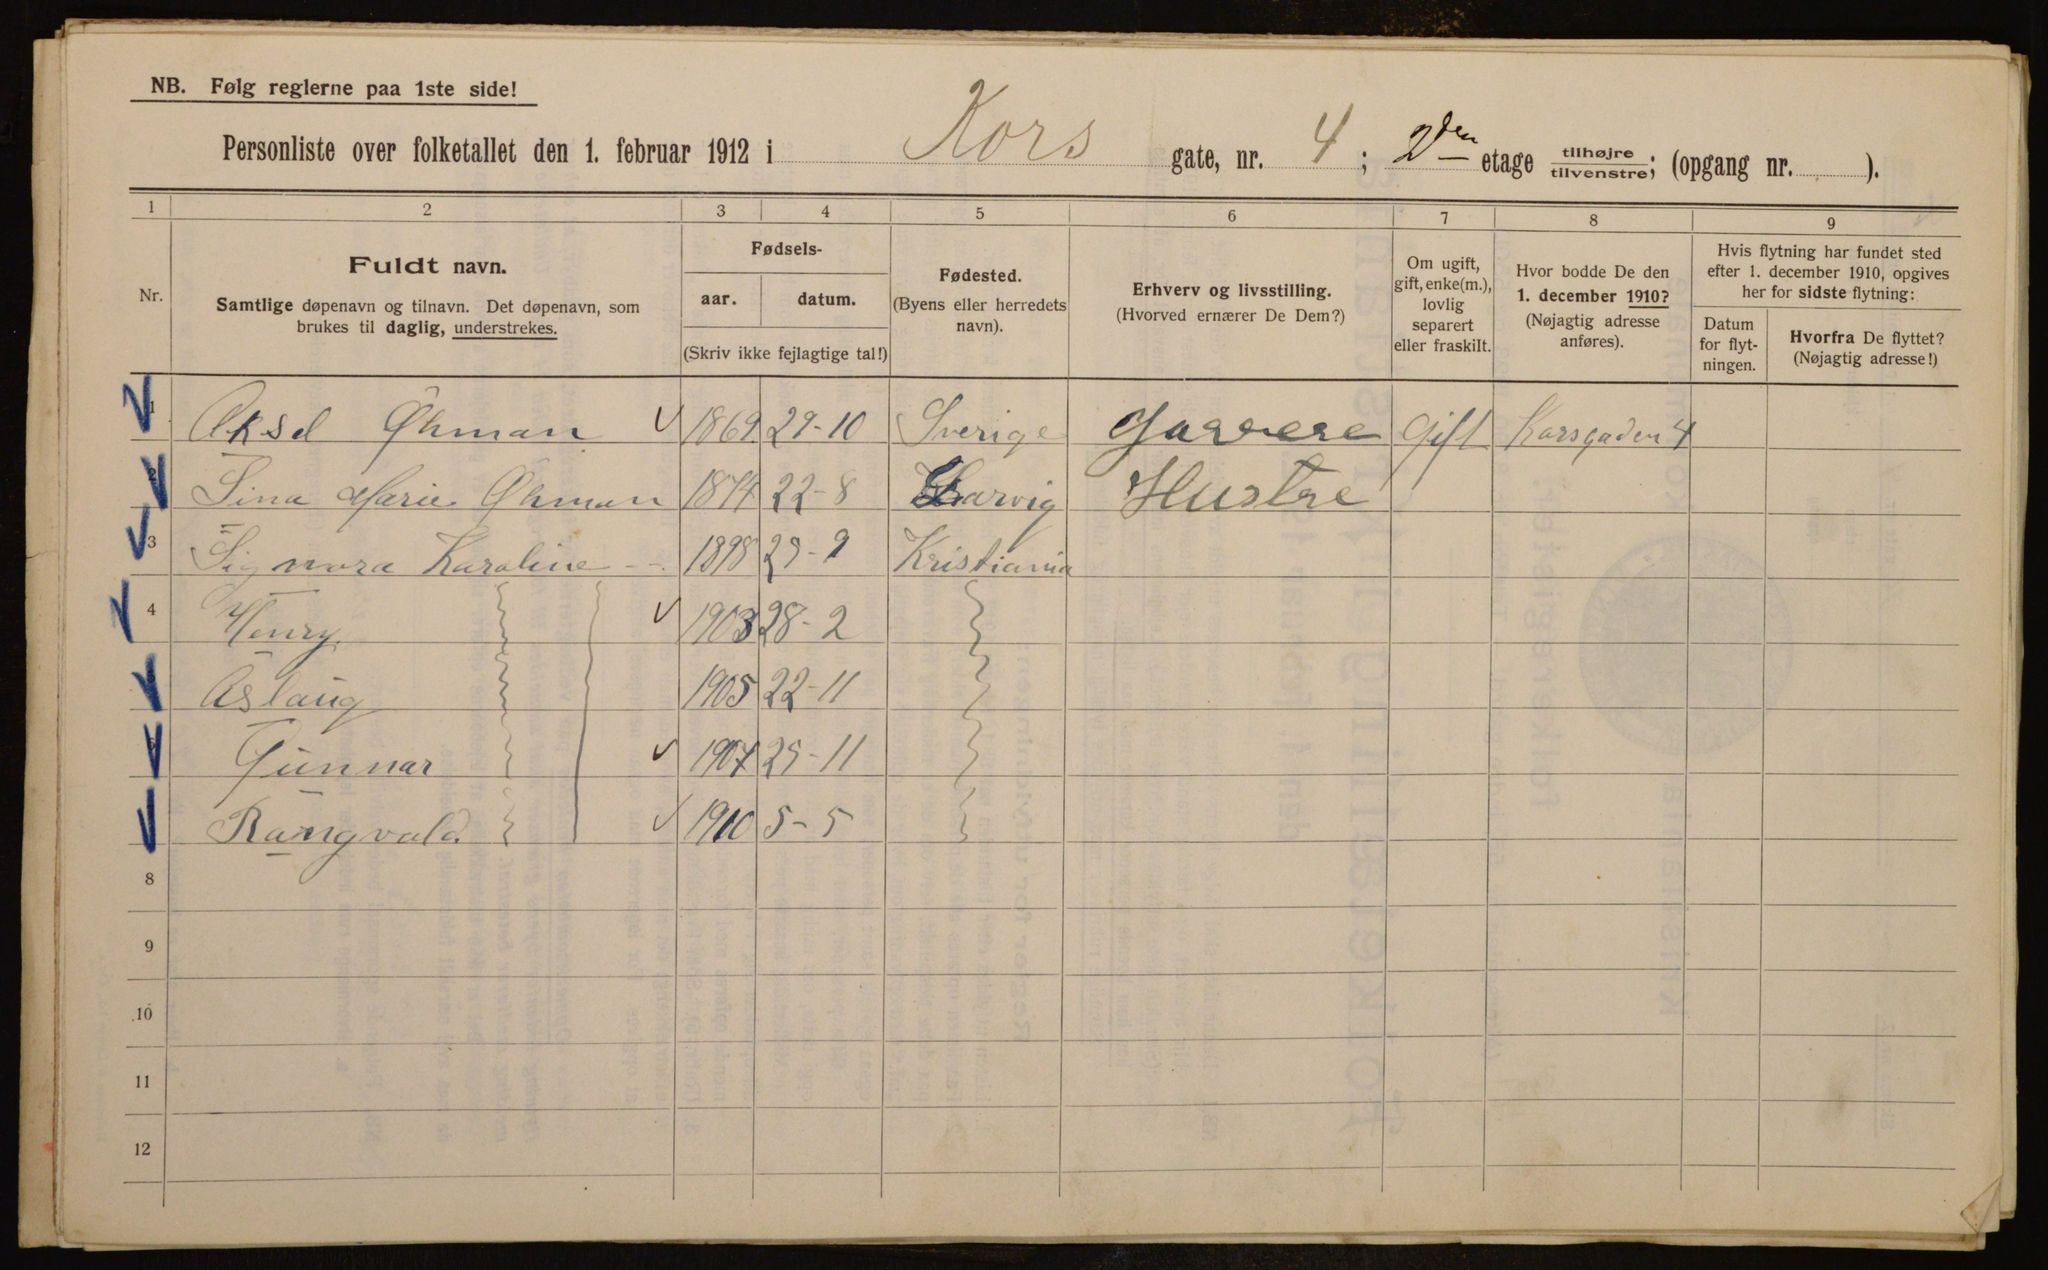 NB. Følg reglerne paa 1ste side!
Personliste over folketallet den 1. februar 1912 i Kors gate, nr. 4; 2den etage tilhøjre tilvenstre; (opgang nr. ).
1 2 3 4 5 6 7 8 9
Nr.
Fuldt navn.
Samtlige døpenavn og tilnavn. Det døpenavn, som
brukes til daglig, understrekes.
Fødsels-
aar. datum.
(Skriv ikke fejlagtige tal!)
Fødested.
(Byens eller herredets
navn).
Erhverv og livsstilling.
(Hvorved ernærer De Dem?)
Om ugift,
gift, enke(m.),
lovlig
separert
eller fraskilt.
Hvor bodde De den
1. december 1910?
(Nøjagtig adresse
anføres).
Hvis flytning har fundet sted
efter 1. december 1910, opgives
her for sidste flytning:
Datum
for flyt-
ningen.
Hvorfra De flyttet?
(Nøjagtig adresse!)
1 Aksel Öhman 1869 29-10 Sverige Garvere Gift Korsgaden 4
2 Sina Marie Öhman 1874 22-8 Larvig Hustre
3 Signora Karoline 1898 29-9 Kristiania
4 Henry 1903 28-2
Aslaug 1905 22-11
Gunnar 1907 25-11
Rangvald. 1910 5-5
8
9
10
11
12